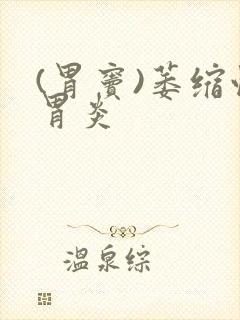 (胃窦)萎缩
胃炎
温泉综